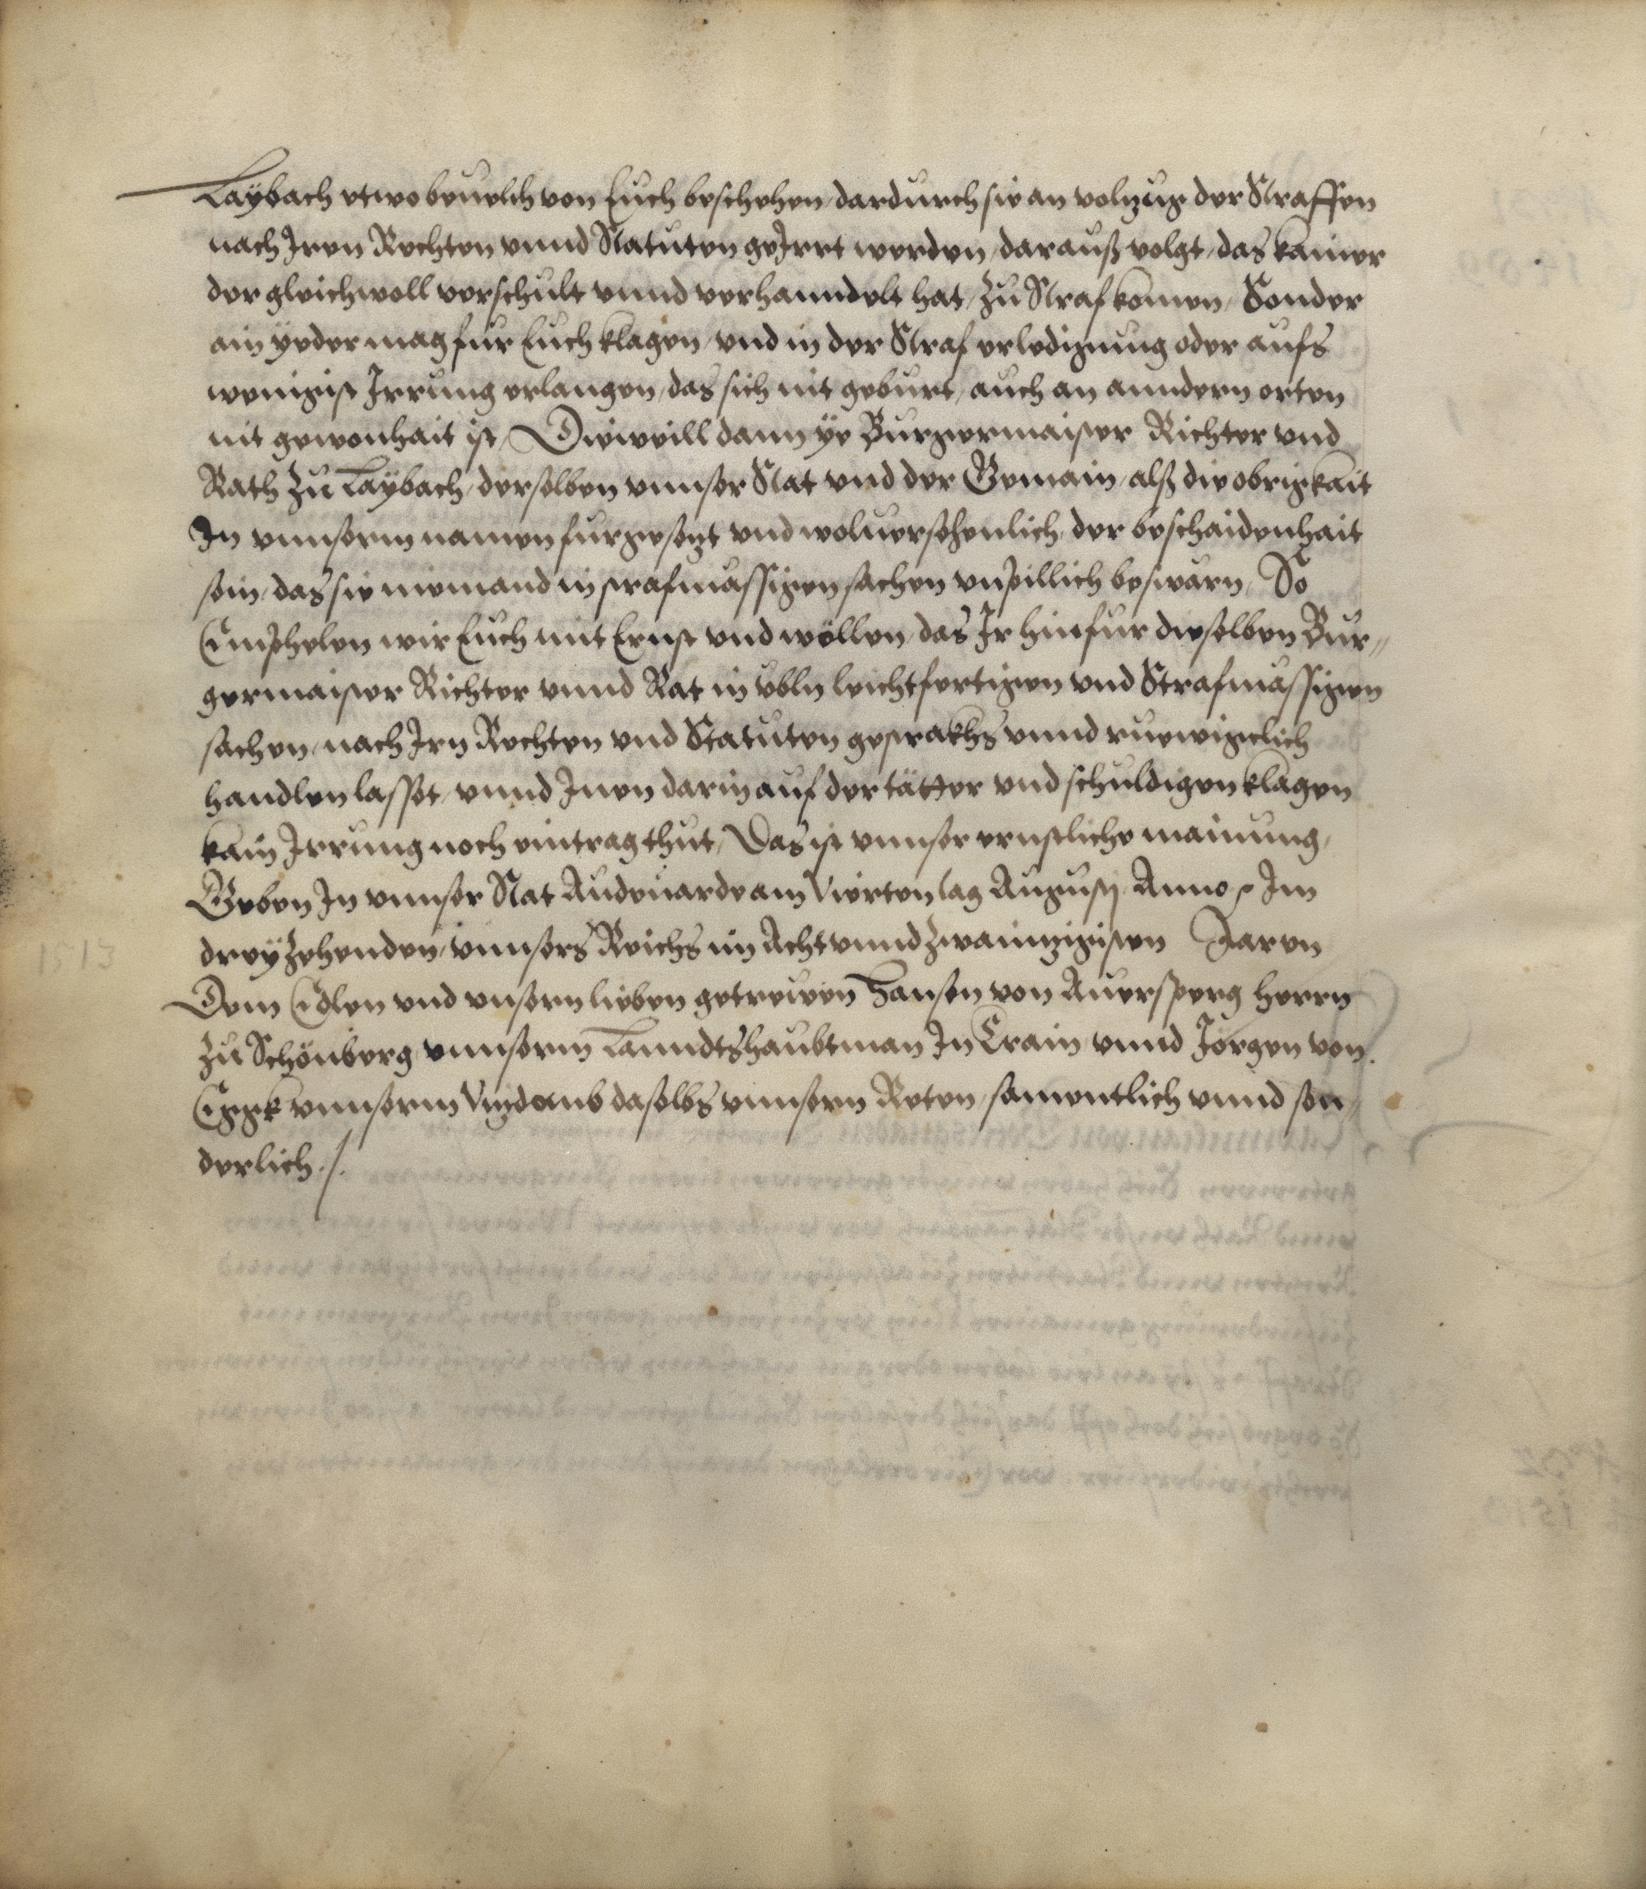 Laÿbach etwo beuelch von Euch beschehen, dardurch sie an volzug der Straffen
nach Jren Rechten vnnd Statuten geJrrt werden, darauß volgt, das kainer
der gleichwoll verschult vnnd verhanndelt hat, zu Straf komen, Sonder
ain yeder mag fur Euch klagen, vnd in der Straf erledigung oder aufs
wenigist Jrrung erlangen, das sich nit geburt, auch an anndern orten
nit gewonhait ist, Dieweill dann ye Burgermaister Richter vnd
Rath zu Laÿbach, derselben vnnser Stat vnd der Gemain, alß die obrigkait
In vnnserm namen furgesezt vnd woluersehenlich, der beschaidenhait
sein, das sie niemand in strafmässigen sachen vnpillich beswärn, So
Emphelen wir Euch mit Ernst vnd wöllen, das Jr hinfur dieselben Bur„
germaister Richter vnnd Rat in vbln leichtfertigen vnd Strafmässigen
sachen, nach Jrn Rechten vnd Statuten gestrakhs vnnd ruewigclich
handlen lasset, vnnd Jnen darin auf der tätter vnd schuldigen klagen
kain Jrrung noch eintrag thut, Das ist vnnser ernstliche mainung,
Geben In vnnser Stat Audenarde am Vierten tag Augusti Anno Im
dreyzehenden, vnnsers Reichs im Acht vnnd zwainzigisten Jaren
Dem Edlen vnd vnsern lieben getrewen Hansen von Auersperg Herrn
zu Schönberg, vnnserm Lanndtshaubtman In Crain, vnnd Jörgen von
Eggk vnnserm Vizdomb daselbs vnnsern Reten, samentlich vnnd son„
derlich ./.
1513